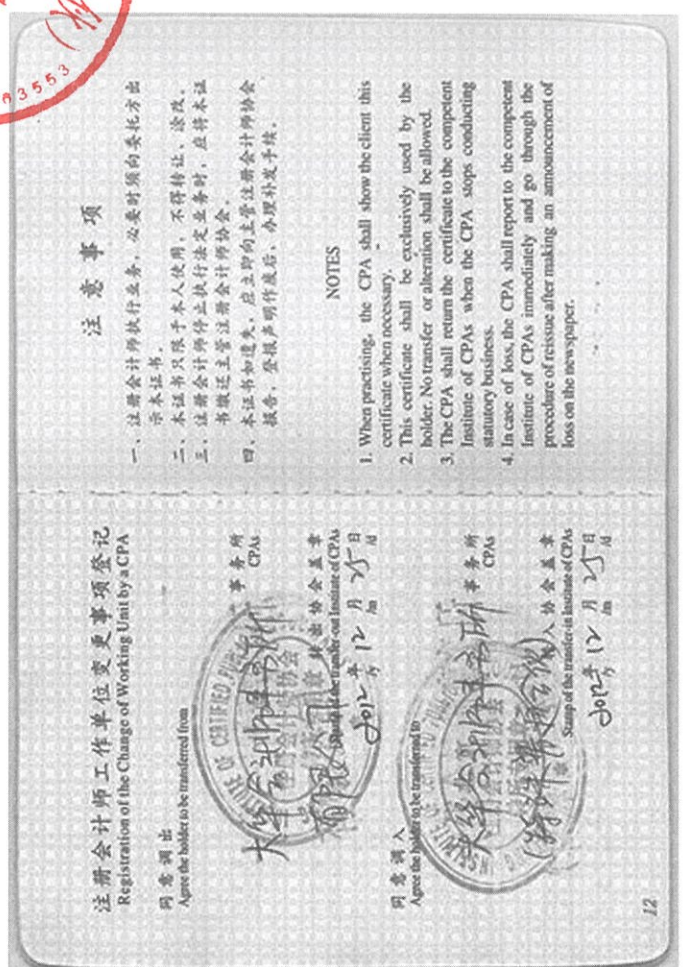 注册会计师工作单位变更事项登记
Registration of the Change of Working Unit by a CPA
同意调出
Agree the holder to be transferred from
大华会计师事务所
有限公司
事务所
CPAs
转出协会盖章
Stamp of the transfer-out Institute of CPAs
2012年12月25日
/y /m /d
同意调入
Agree the holder to be transferred to
大华会计师事务所
(特殊普通合伙)
事务所
CPAs
转入协会盖章
Stamp of the transfer-in Institute of CPAs
2012年12月25日
/y /m /d
12
注意事项
一、注册会计师执行业务,必要时须向委托方出
示本证书。
二、本证书只限于本人使用,不得转让、涂改。
三、注册会计师停止执行法定业务时,应将本证
书缴还主管注册会计师协会。
四、本证书如遗失,应立即向主管注册会计师协会
报告,登报声明作废后,办理补发手续。
NOTES
1. When practising, the CPA shall show the client this
certificate when necessary.
2. This certificate shall be exclusively used by the
holder. No transfer or alteration shall be allowed.
3. The CPA shall return the certificate to the competent
Institute of CPAs when the CPA stops conducting
statutory business.
4. In case of loss, the CPA shall report to the competent
Institute of CPAs immediately and go through the
procedure of reissue after making an announcement of
loss on the newspaper.
03553